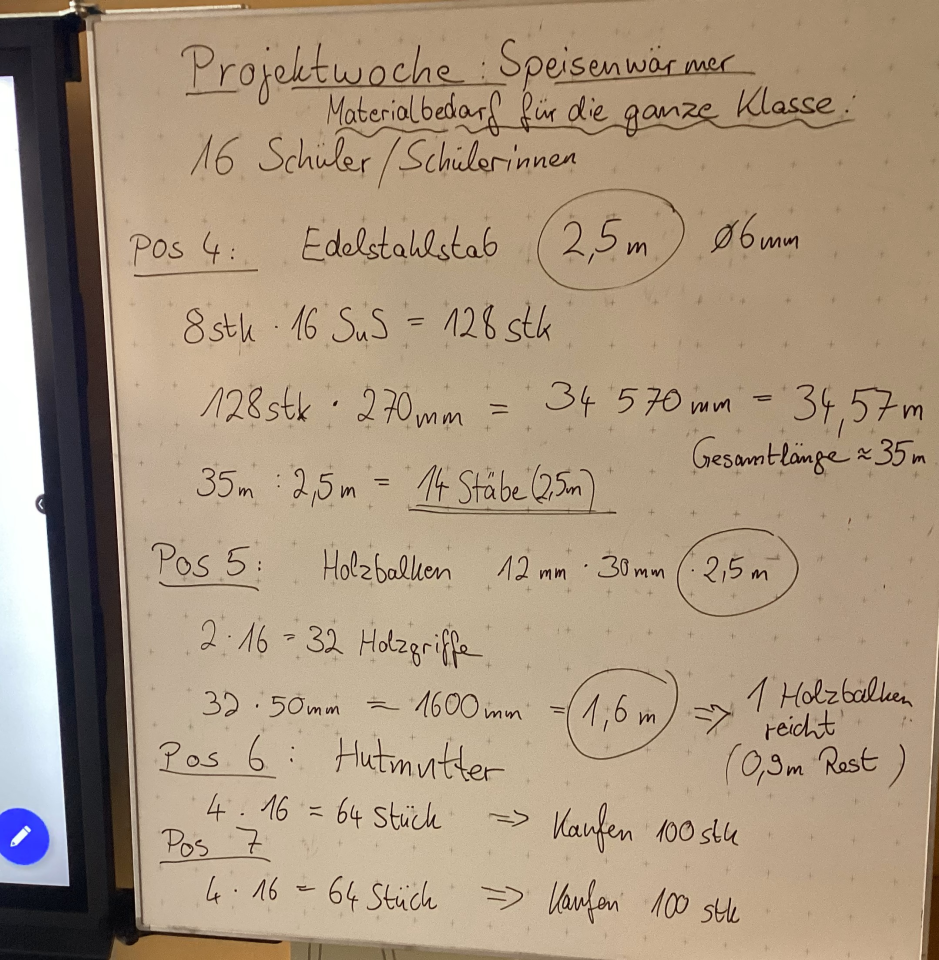 Projektwoche: Speisenwärmer
Materialbedarf für die ganze Klasse:
16 Schüler/Schülerinnen
Pos 4: Edelstahlstab 2,5m Ø6mm
8stk · 16 SuS = 128 stk
128stk · 270mm = 34 570mm = 34,57m
Gesamtlänge ≈ 35m
35m : 2,5m = 14 Stäbe (2,5m)
Pos 5: Holzbalken 12 mm · 30mm · 2,5m
2 · 16 = 32 Holzgriffe
32 · 50mm = 1600mm = 1,6m ⇒ 1 Holzbalken
reicht
(0,9m Rest)
Pos 6: Hutmutter
4 · 16 = 64 Stück ⇒ Kaufen 100 stk
Pos 7
4 · 16 = 64 Stück ⇒ Kaufen 100 stk